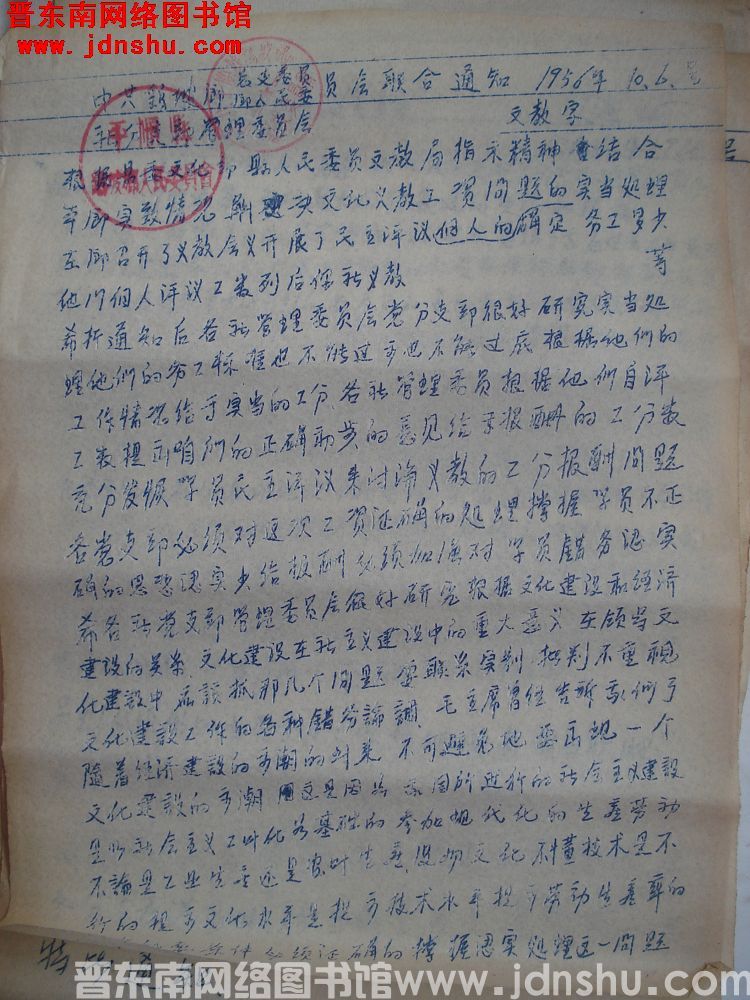 晋东南网络图书馆
www.jdnshu.com
中共 乡 总支委员
乡人民委 员会联合通知 1956年10.6.
管理委员会
文教字
平顺县
人民委员会
根据县委文化部县人民委员文教局指示精神 结合
本乡实致情况 解决文化义教工资问题的实当处理
在乡召开了义教会议开展了民主评议个人的确定 务工多少
等
他们个人评议工数列后供社义教
希折通知后各社管理委员会党分支部很好研究实当处
理他们的务工标准也不能过多也不能过底根据他们的
工作情况给于实当的工分、各社管理委员根据他们自评
工数提出咱们的正确初步的意见给于报酬的工分数
充分发颁学员民主评议来讨论义教的工分报酬问题
各党支部必须对这次工资正确的处理撑握学员不正
确的思想认实少给报酬必须加强对学员错务认实
希各社党支部管理委员会很好研究根据文化建设和经济
建设的关系、文化建设在社主义建设中的重大意义 在领导文
化建设中应该抓那几个问题 要联系实判 批判不重视
文化建设工作的各种错务论调 毛主席曾经告诉我们了
随着经济建设的高潮的到来 不可避免地要出现一个
文化建设的高潮 这是因为我国所进行的社会主义建设
是以社会主义工叶化为基础的 参加现代化的生产劳动
不论是工业生产还是农叶生产,没有文化不懂技术是不
行的 提高文化水平是提高技术水平提高劳动生产率的
必须正确的撑握认实处理这一问题
特
晋东南网络图书馆
http://www.jdnshu.com